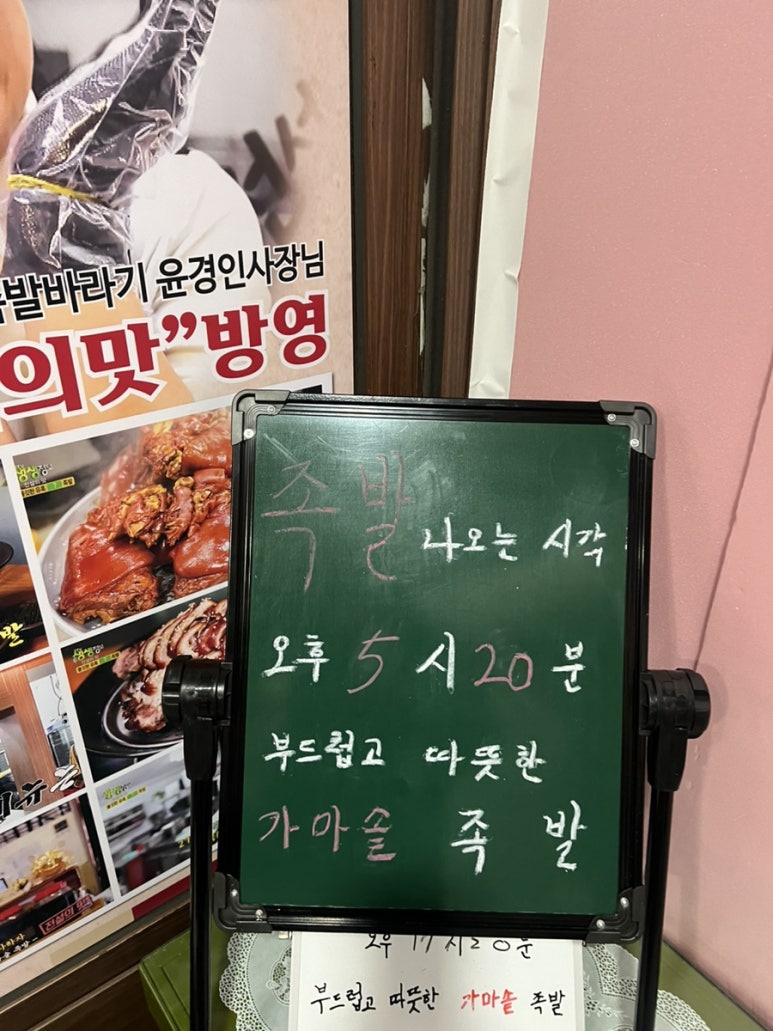 족발바라기 윤경인사장님
의맛”방영
족발 나오는 시각
오후 5시 20분
부드럽고 따뜻한
가마솥 족 발
부드럽고 따뜻한 가마솥 족발